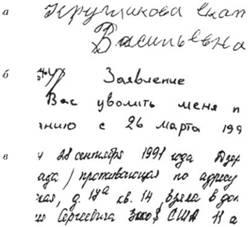 а Кругликова Екат
Васильевна
б Заявление
Вас уволить меня п
нию с 26 марта 199
в 28 сентября 1991 года
проживающая по адресу
ная, д. 17а кв. 14, взяла в дол
Сергеевича 3000$ США На